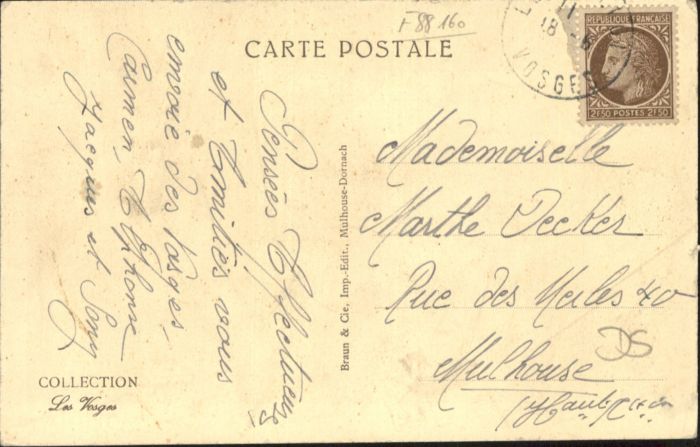 F 88 160
CARTE POSTALE
18
VOSGES
REPUBLIQUE FRANÇAISE
2F50 POSTES 2F50
Pensées Affectueuses
et Amitiés vous
envoie des Vosges,
Carmen, Alphonse
Jacques et
Braun & Cie, Imp.-Edit., Mulhouse-Dornach
Mademoiselle
Marthe Decker
Rue des Merles 40
Mulhouse
(Haut Rhin
DS
COLLECTION
Les Vosges